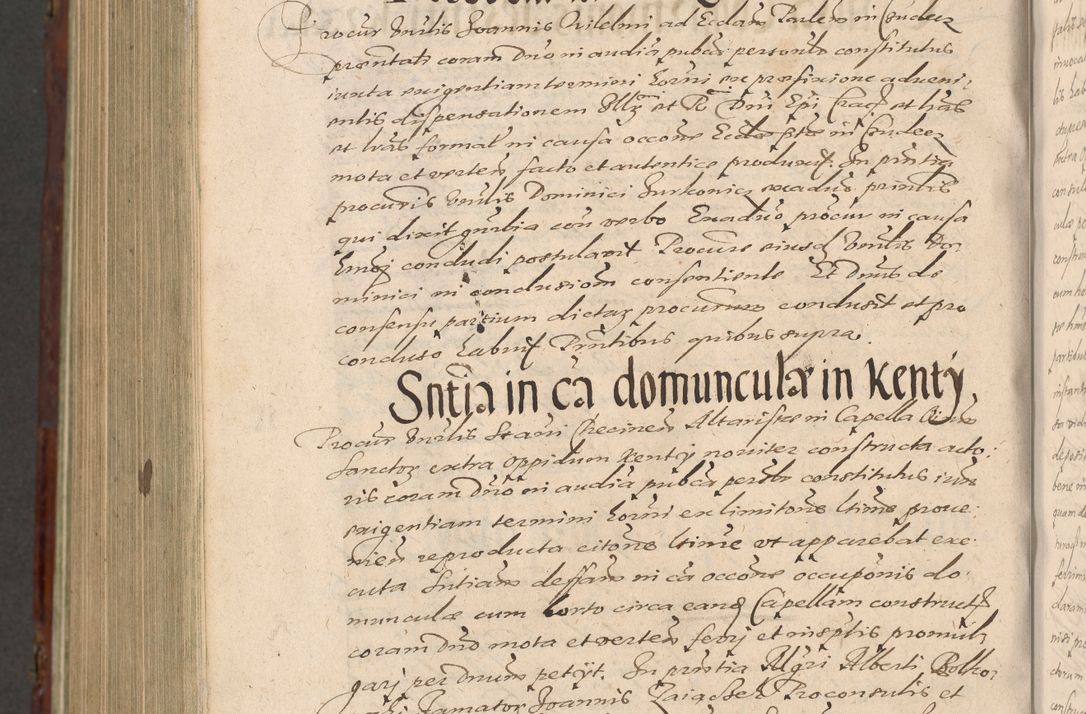 Procur Venlis Joannis Vilelmi ad Ecclam Parlem in Crudecz
prentati coram Dno in audia pubca personlr constitutus
iuxta exigentiam termini horni ex prefixione adueni
entis dispensationem Illmi et Rmi Dni Epi Crac et lras
et lras format in causa occone Ecclae Stae in Crudecz
mota et verten facto et autentice produxit. In pntia
procuris Venlis Dominici Surkonicz vocadus, prinlis
qui dixit gnrlia con verbo Exaduo procur in causa
hmoi concludi postulavit Procure eiusd Venlis Do
minici in conclusiom consentiente Et Dnus de
consensu partium dictar procurum conclusit et pro
concluso habuit Pntibus quibus supra.
Sntia in ca domunculae in Kenty
Procur Venlis Stani Crecinen Altaristae in Capella Omn
Sanctor extra oppidum Kenty noviter constructa acto
ris coram Dno in audia pubca persolr constitutus iux
exigentiam termini horni ex limitone ltime prove
nien reproducta citone ltime ut apparebat exe
cuta Sntiam deffam in ca occone occuponis do
munculae cum horto circa eand Capellam constructe
coram Dno mota et verten ferri et in scptis promul
gari per Dnum petyt. In pntia Mgri Alberti
Famator Joannis Proconsulis et